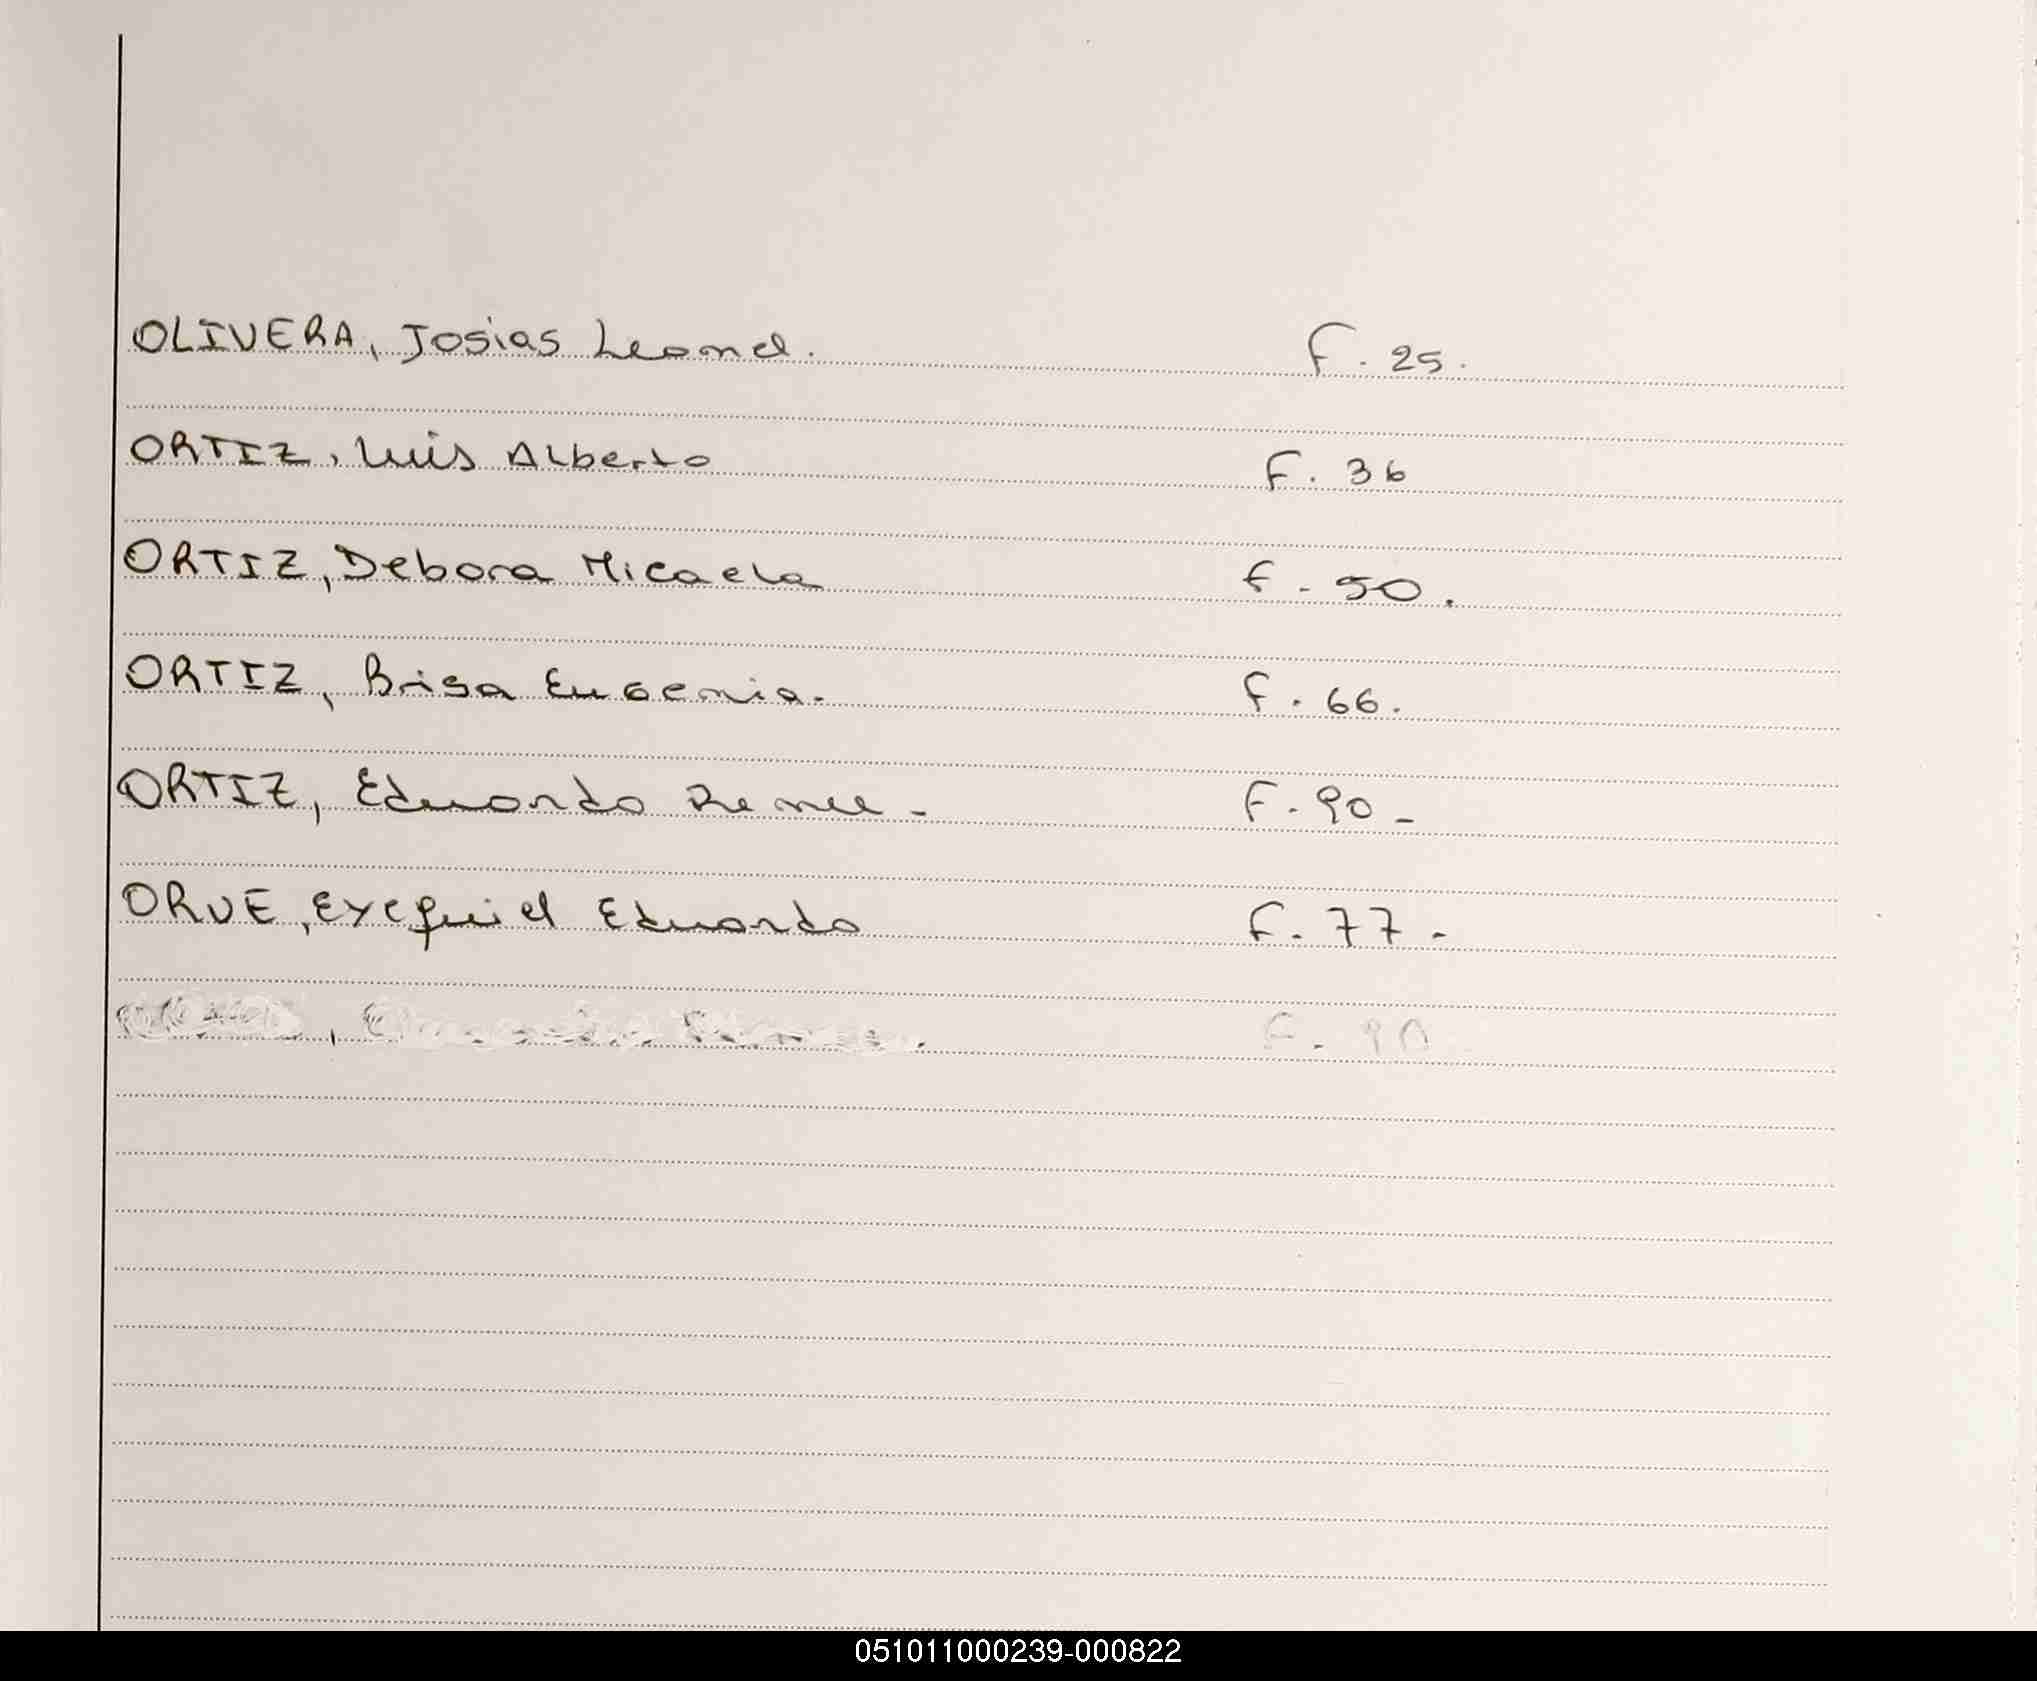 OLIVERA, Josias Leonel. F. 25.
ORTIZ, Luis Alberto F. 36
ORTIZ, Debora Micaela F - 50.
ORTIZ, Brisa Eugenia. F. 66.
ORTIZ, Eduardo Renee - F. 90 -
ORUE, Exequiel Eduardo F. 77.
F. 90
051011000239-000822